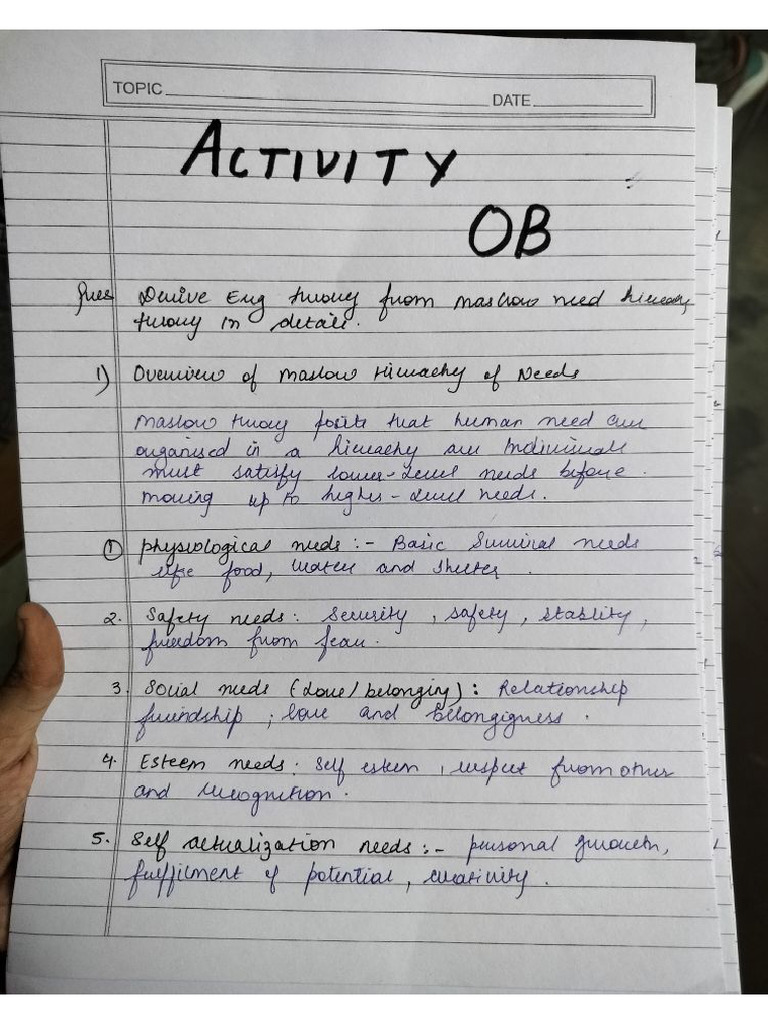 TOPIC
DATE
ACTIVITY
OB
Ques Derive Erg theory from maslow need hierarchy
theory in detail.
1) Overview of maslow Hierachy of Needs
Maslow theory posits that human need are
organised in a hierachy are Individuals
must satisfy lower-Level needs before
moving up to higher-Level needs.
① physiological needs :- Basic Survival needs
like food, water and shelter
2. Safety needs: Security, safety, stablity,
freedom from fear.
3. Social needs (Love/belonging): Relationship
friendship, love and belongigness.
4. Esteem needs: Self esteem, respect from other
and recognition.
5. Self actualization needs :- personal growth,
fulfilment of potential, creativity.